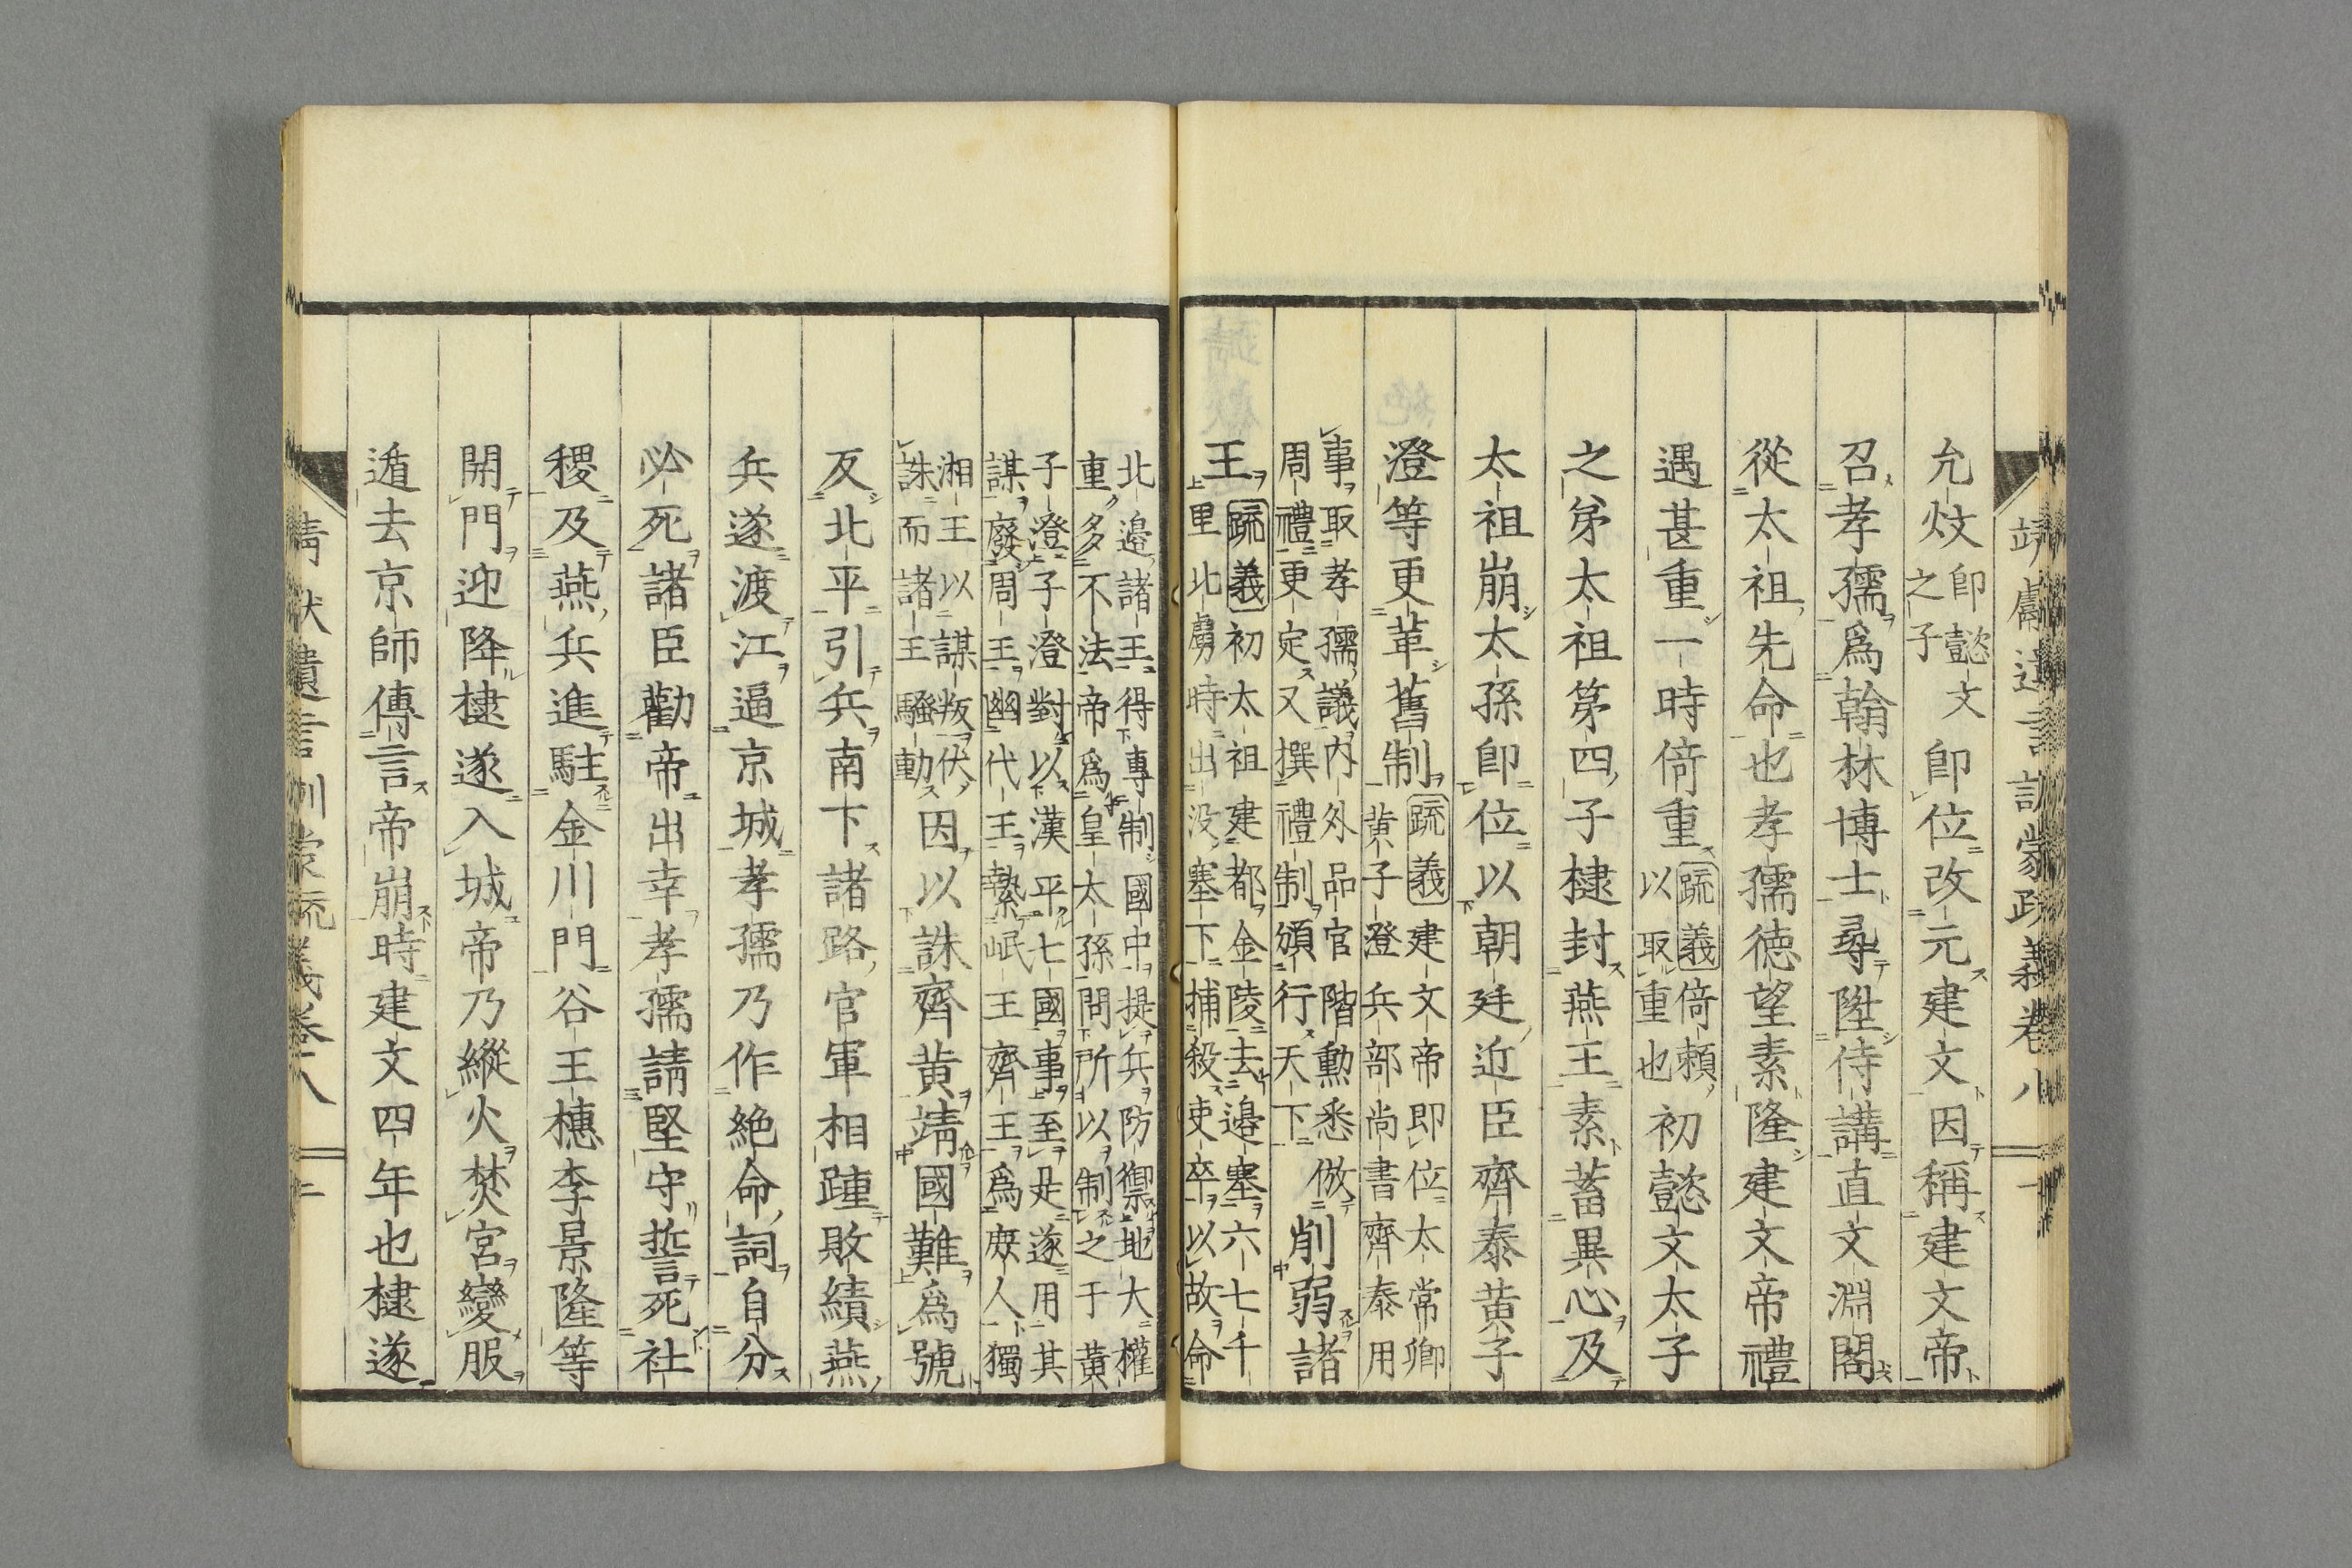 靖獻遺言訓蒙疏義卷八 一
允炆即懿文之子即位改元建文因稱建文帝
召孝孺爲翰林博士尋陞侍講直文淵閣
從太祖先命也孝孺徳望素隆建文帝禮
遇甚重一時倚重疏義倚賴以取重也初懿文太子
之弟太祖第四子棣封燕王素蓄異心及
太祖崩太孫即位以朝廷近臣齊泰黄子
澄等更革舊制疏義建文帝即位太常卿黄子澄兵部尚書齊泰用
事取孝孺議内外品官階勳悉倣周禮更定又撰禮制頒行天下削弱諸
王疏義初太祖建都金陵去邊塞六七千里北虜時出没塞下捕殺吏卒以故命
北邊諸王得專制國中提兵防禦地大權重多不法帝爲皇太孫問所以制之于黄
子澄子澄對以漢平七國事至是遂用其謀廢周王幽代王縶岷王齊王爲庶人獨
湘王以謀叛伏誅而諸王騷動因以誅齊黄靖國難爲號
反北平引兵南下諸路官軍相踵敗績燕
兵遂渡江逼京城孝孺乃作絶命詞自分
必死諸臣勸帝出幸孝孺請堅守誓死社
稷及燕兵進駐金川門谷王橞李景隆等
開門迎降棣遂入城帝乃縱火焚宮變服
遁去京師傳言帝崩時建文四年也棣遂
靖献遺言訓蒙疏義卷八 二